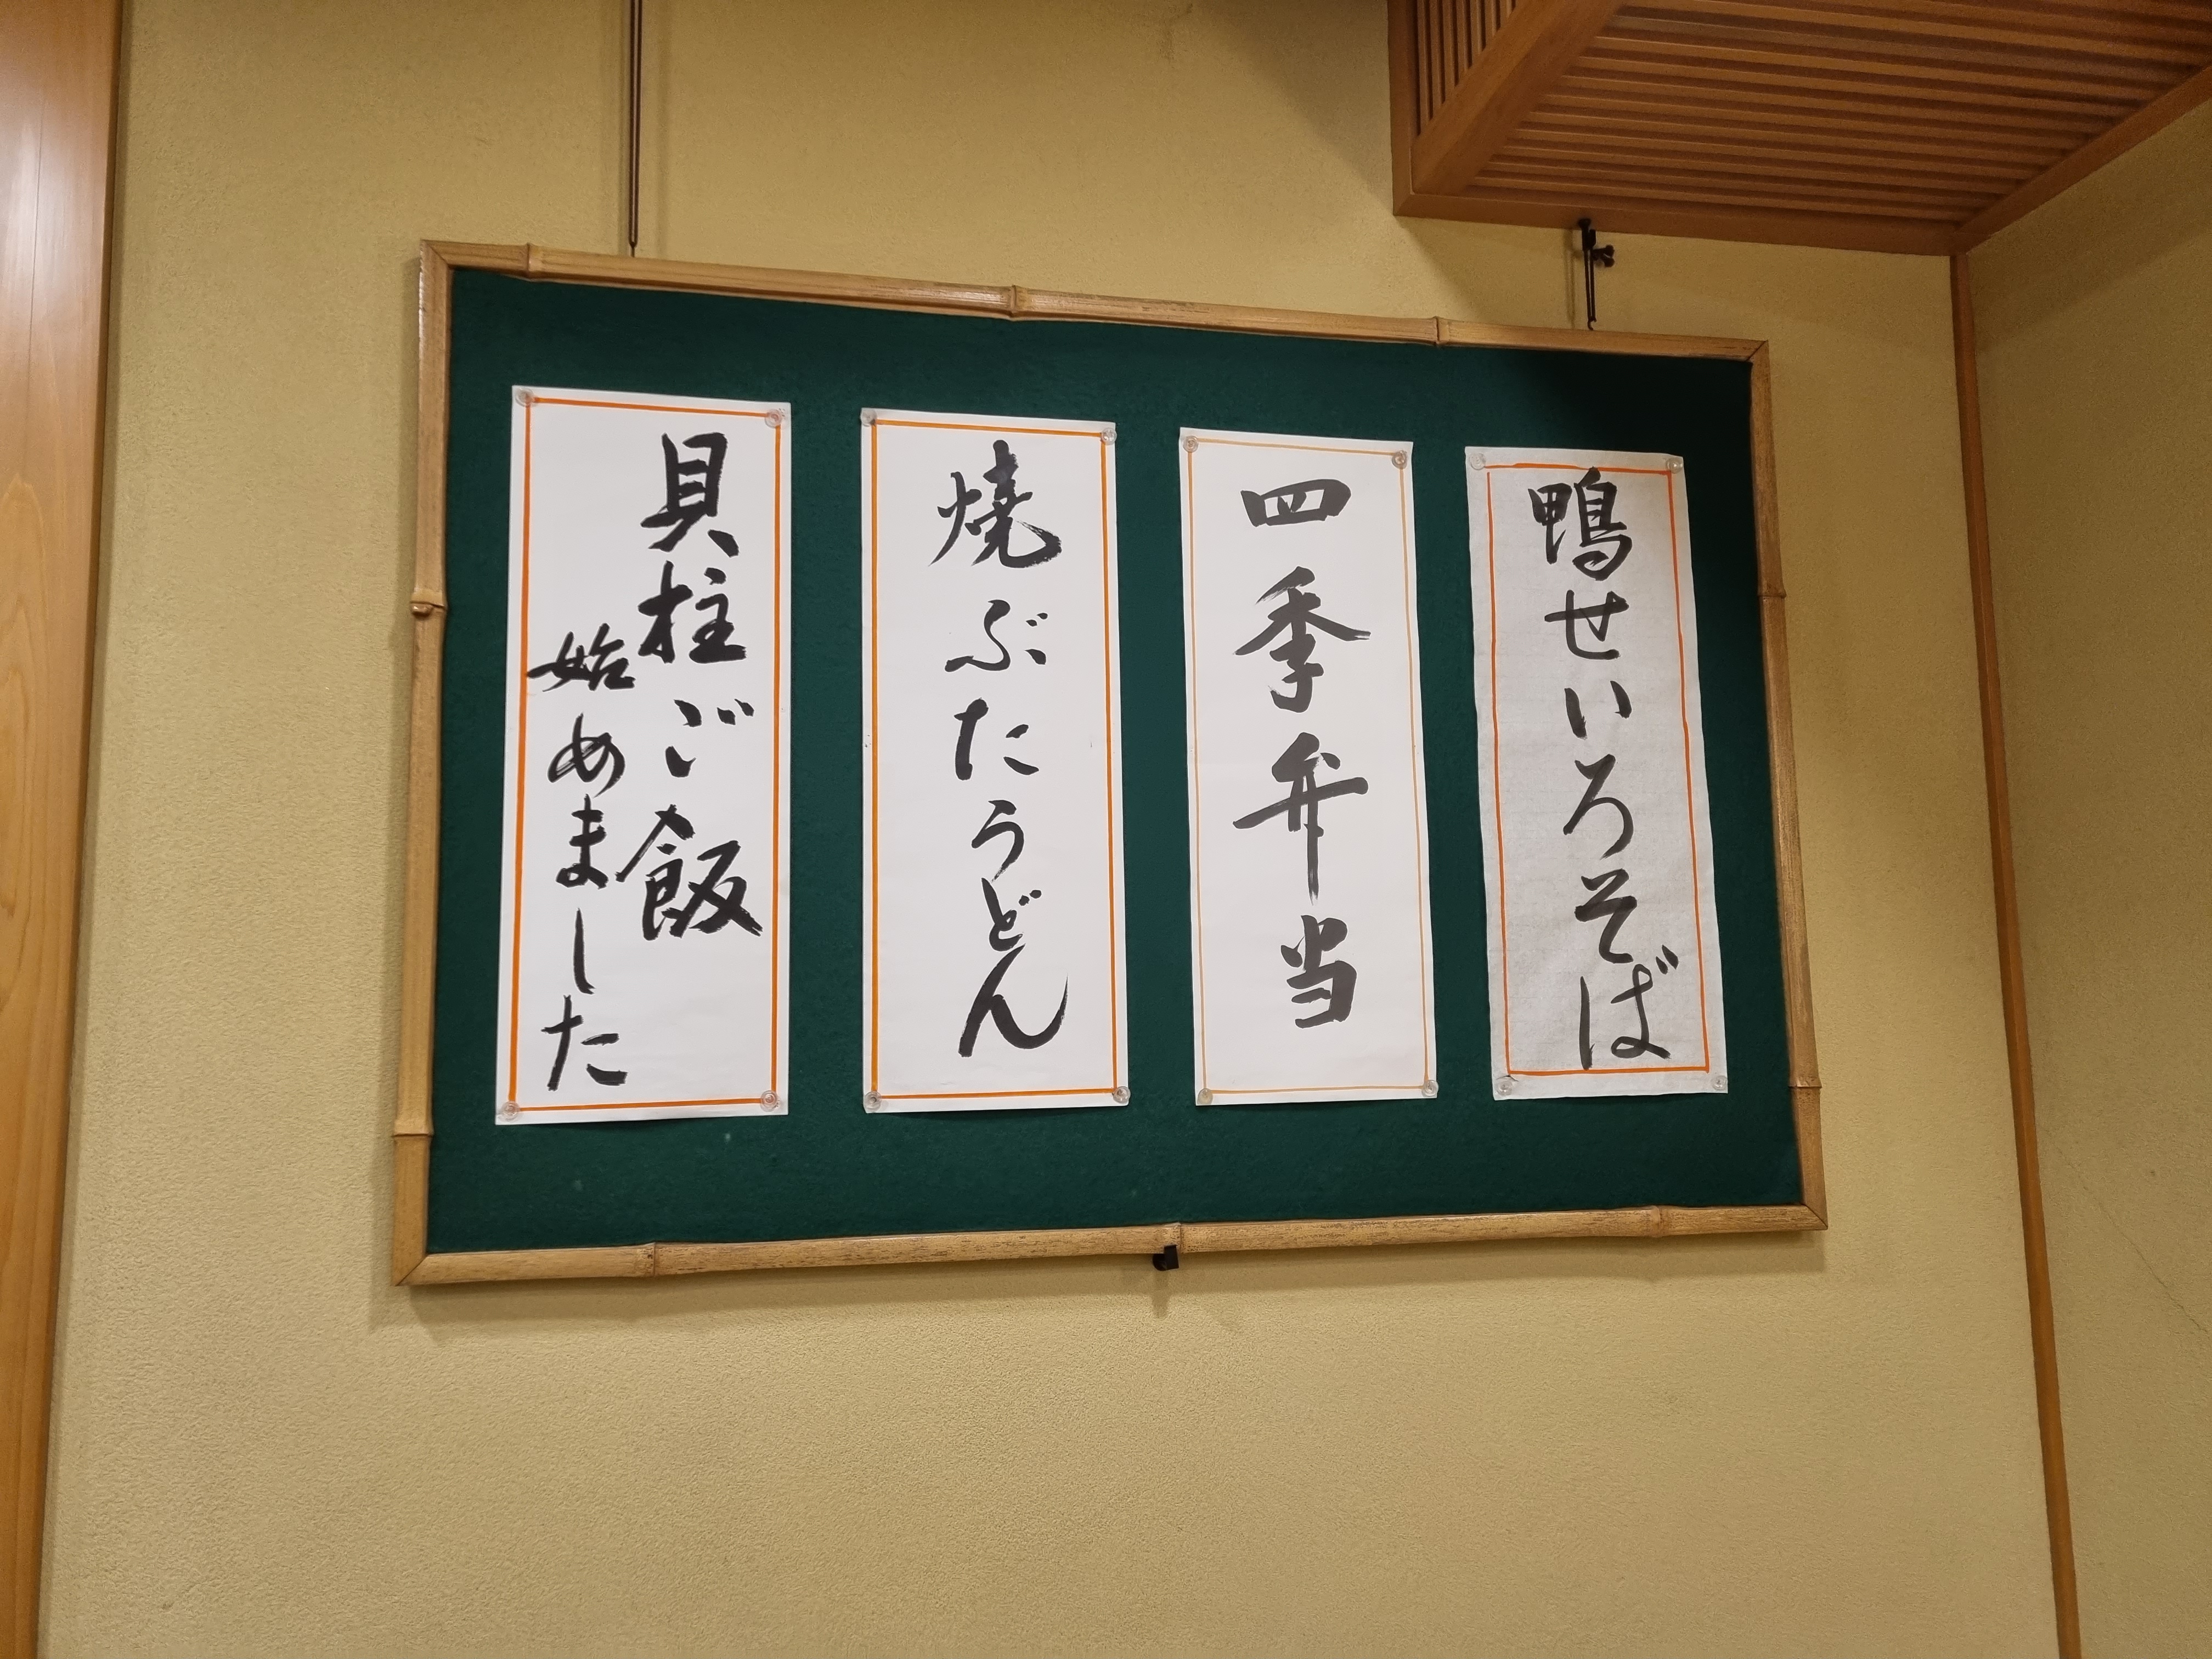 鴨せいろそば
四季弁当
焼ぶたうどん
貝柱ご飯
始めました